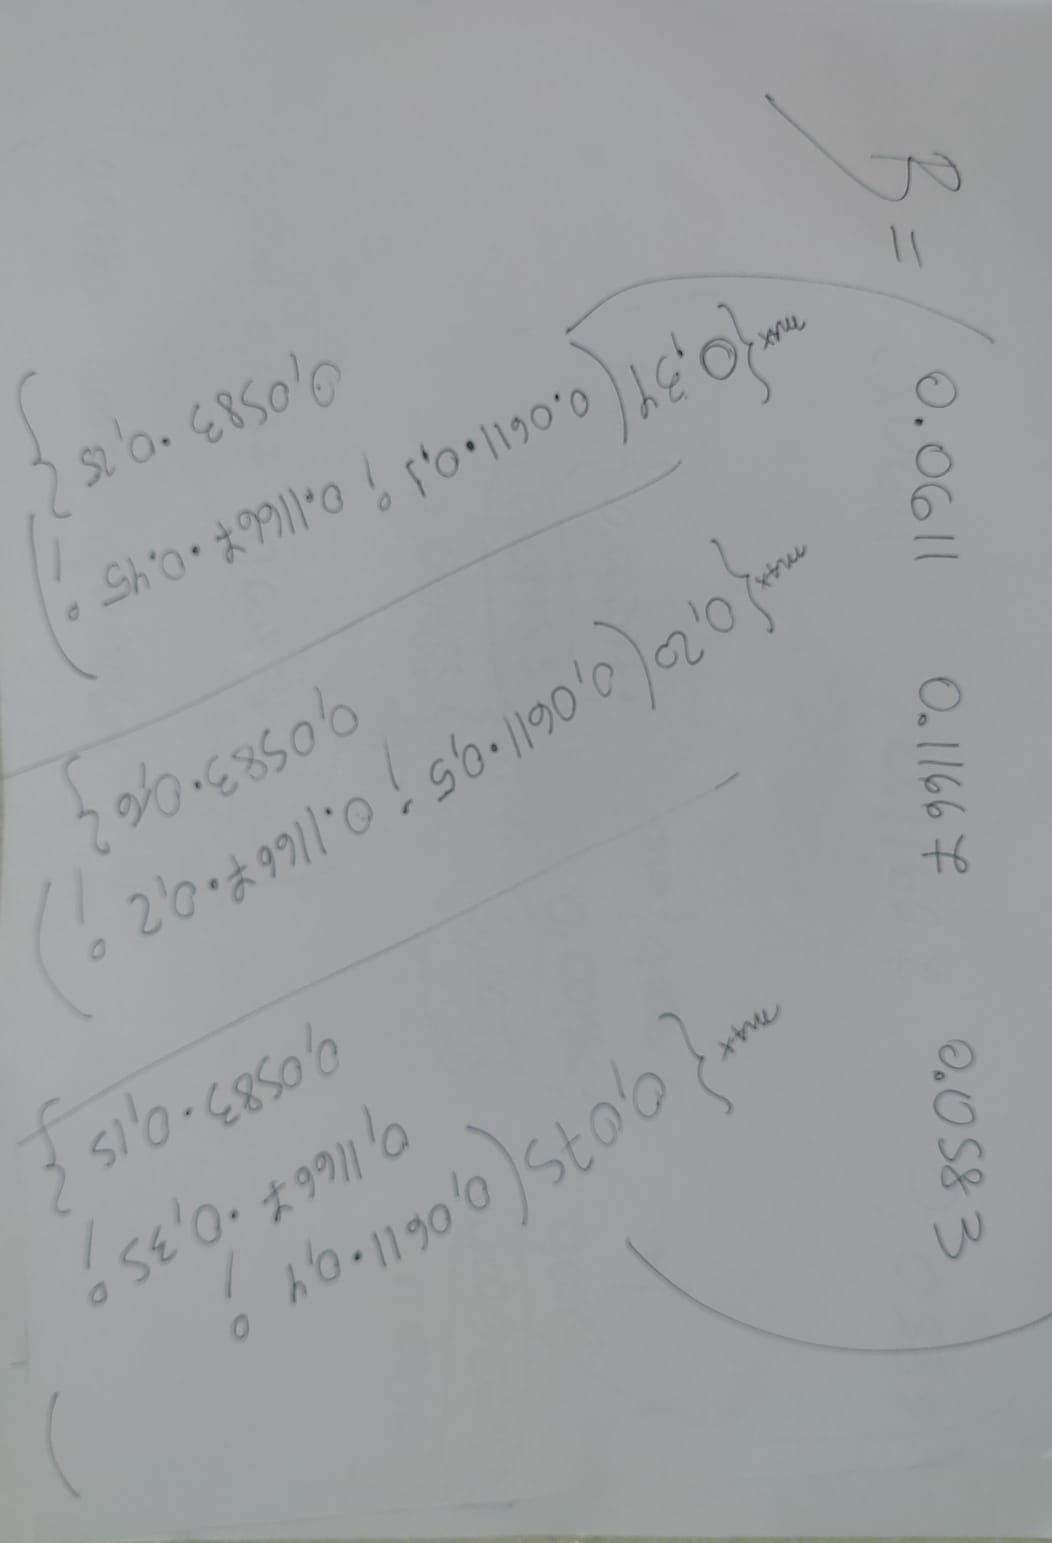 B =
0.0611 0.1167 0.0583
max {0,34 (0.0611·0,1 ; 0.1167·0.45 ;
0,0583·0,25 }
max {0,20 (0,0611·0,5 ; 0.1167·0,2 ;
0,0583·0,6 }
max {0,075 (0,0611·0,4 ;
0,1167·0,35 ;
0,0583·0,15 }